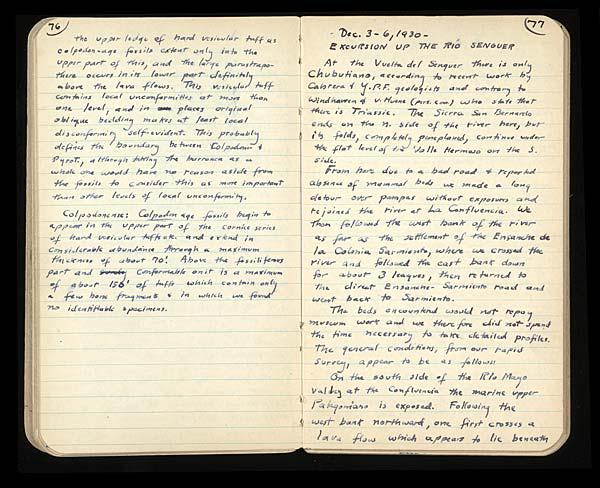 76
the upper ledge of hard vesicular tuff as
colpodon-age fossils extent only into the
upper part of this, and the large parastrapo-
there occurs in its lower part definitely
above the lava flows. This vesicular tuff
contains local unconformities at more than
one level, and in places original
oblique bedding makes at least local
disconformity self-evident. This probably
defines the boundary between Colpodon &
Pyrot., although taking the barranca as a
whole one would have no reason aside from
the fossils to consider this as more important
than other levels of local unconformity.
Colpodonense: Colpodon age fossils begin to
appear in the upper part of the cornice series
of hard vesicular tuffs etc. and extend in
considerable abundance through a maximum
thickness of about 70'. Above the fossiliferous
part and conformable on it is a maximum
of about 150' of tuffs which contain only
a few bone fragments & in which we found
no identifiable specimens.
77
Dec. 3-6, 1930-
EXCURSION UP THE RÍO SENGUER
At the Vuelta del Senguer there is only
Chubutiano, according to recent work by
Cabrera & Y.P.F. geologists and contrary to
Windhausen & v. Huene (pers. com.) who state that
there is Triassic. The Sierra San Bernardo
ends on the N. side of the river here, but
its folds, completely peneplaned, continue under
the flat level of the Valle Hermoso on the S.
side.
From here due to a bad road & reported
absence of mammal beds we made a long
detour over pampas without exposures and
rejoined the river at La Confluencia. We
then followed the west bank of the river
as far as the settlement of the Ensanche de
la Colonia Sarmiento, where we crossed the
river and followed the east bank down
for about 3 leagues, then returned to
the direct Ensanche-Sarmiento road and
went back to Sarmiento.
The beds encountered would not repay
museum work and we therefore did not spend
the time necessary to take detailed profiles.
The general conditions, from our rapid
survey, appear to be as follows:
On the south side of the Río Mayo
valley at the Confluencia the marine upper
Patagoniano is exposed. Following the
west bank northward, one first crosses a
lava flow which appears to lie beneath